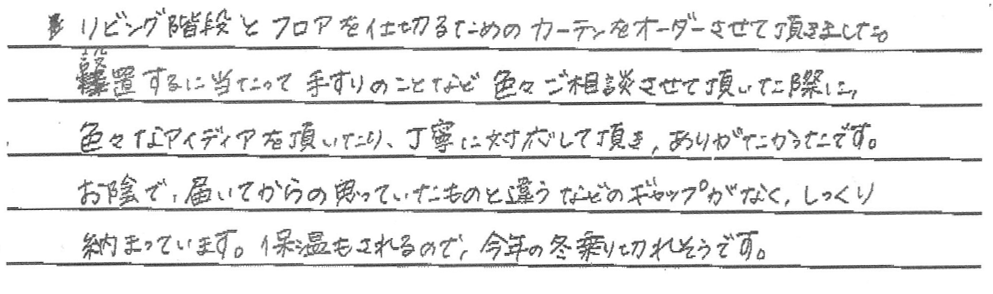 リビング階段とフロアを仕切るためのカーテンをオーダーさせて頂きました。
設置するに当たって手すりのことなど色々ご相談させて頂いた際に、
色々なアイディアを頂いたり、丁寧に対応して頂き、ありがたかったです。
お陰で、届いてからの思っていたものと違うなどのギャップがなく、しっくり
納まっています。保温もされるので、今年の冬乗り切れそうです。